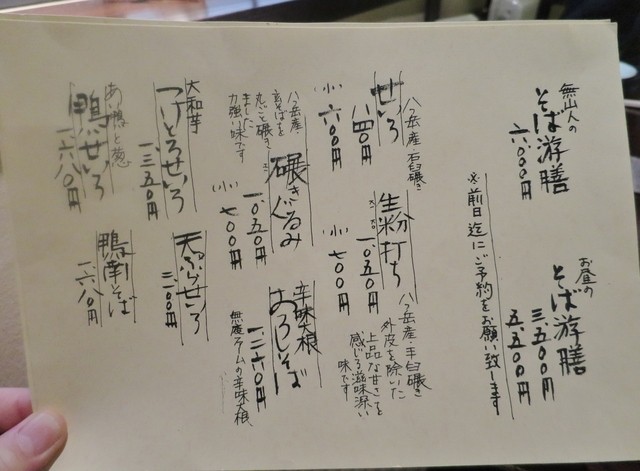 無山人の
そば游膳
六、〇〇〇円
お昼の
そば游膳
三、五〇〇円
五、五〇〇円
※前日迄にご予約をお願い致します
八ヶ岳産・石臼碾き
せいろ
八四〇円
(小)六〇〇円
生粉打ち
一、〇五〇円
(小)七〇〇円
八ヶ岳産・手臼碾き
外皮を除いた
上品な甘さを
感じる滋味深い
味です
八ヶ岳産・
玄そばを
丸ごと碾き
ました
力強い味です
碾きぐるみ
一、〇五〇円
(小)七〇〇円
辛味大根
おろしそば
一、二六〇円
無庵ファームの辛味大根
大和芋
つけとろせいろ
一、三五〇円
天ぷらせいろ
二、一〇〇円
あい鴨と葱
鴨せいろ
一、六八〇円
鴨南そば
一、六八〇円